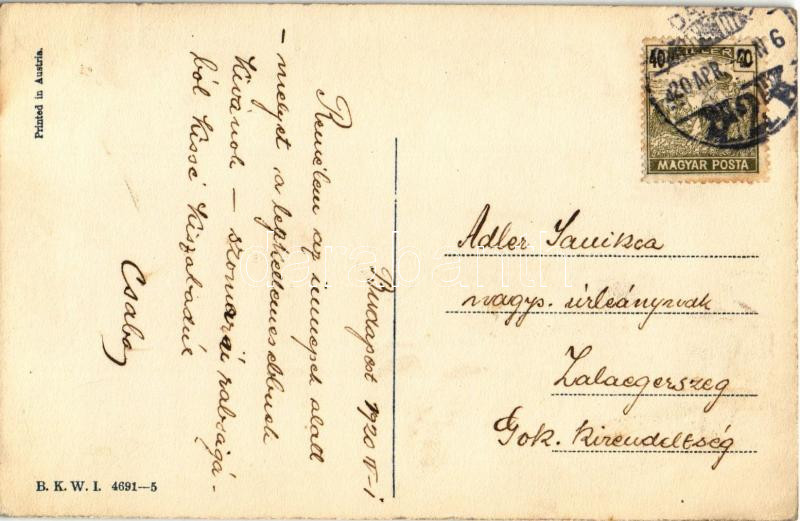 Printed in Austria.
Budapest 1920 IV-1
Remélem az ünnepek alatt
- melyet a legkellemesebbnek
kívánok - szomorú rabságá-
ból kissé kiszabadul
Csaba
B. K. W. I. 4691-5
40 FILLÉR 40
MAGYAR POSTA
920 APR.
N 6
Adler
nagys. úrleánynak
Zalaegerszeg
Gok. kirendeltség
darabanth